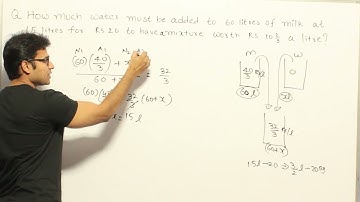 Q. How much water must be added to 60 litres of milk at
1½ litres for Rs 20 to have a mixture worth Rs 10⅔ a litre?
N₁ A₁ N₂
(60)(40/3) + x
60 + x = 32/3
32/3 (60+x)
15 l
M W
40/3 0
60l x l
32/3
(60+x)
1.5 l - 20 ⇒ 3/2 l - 20